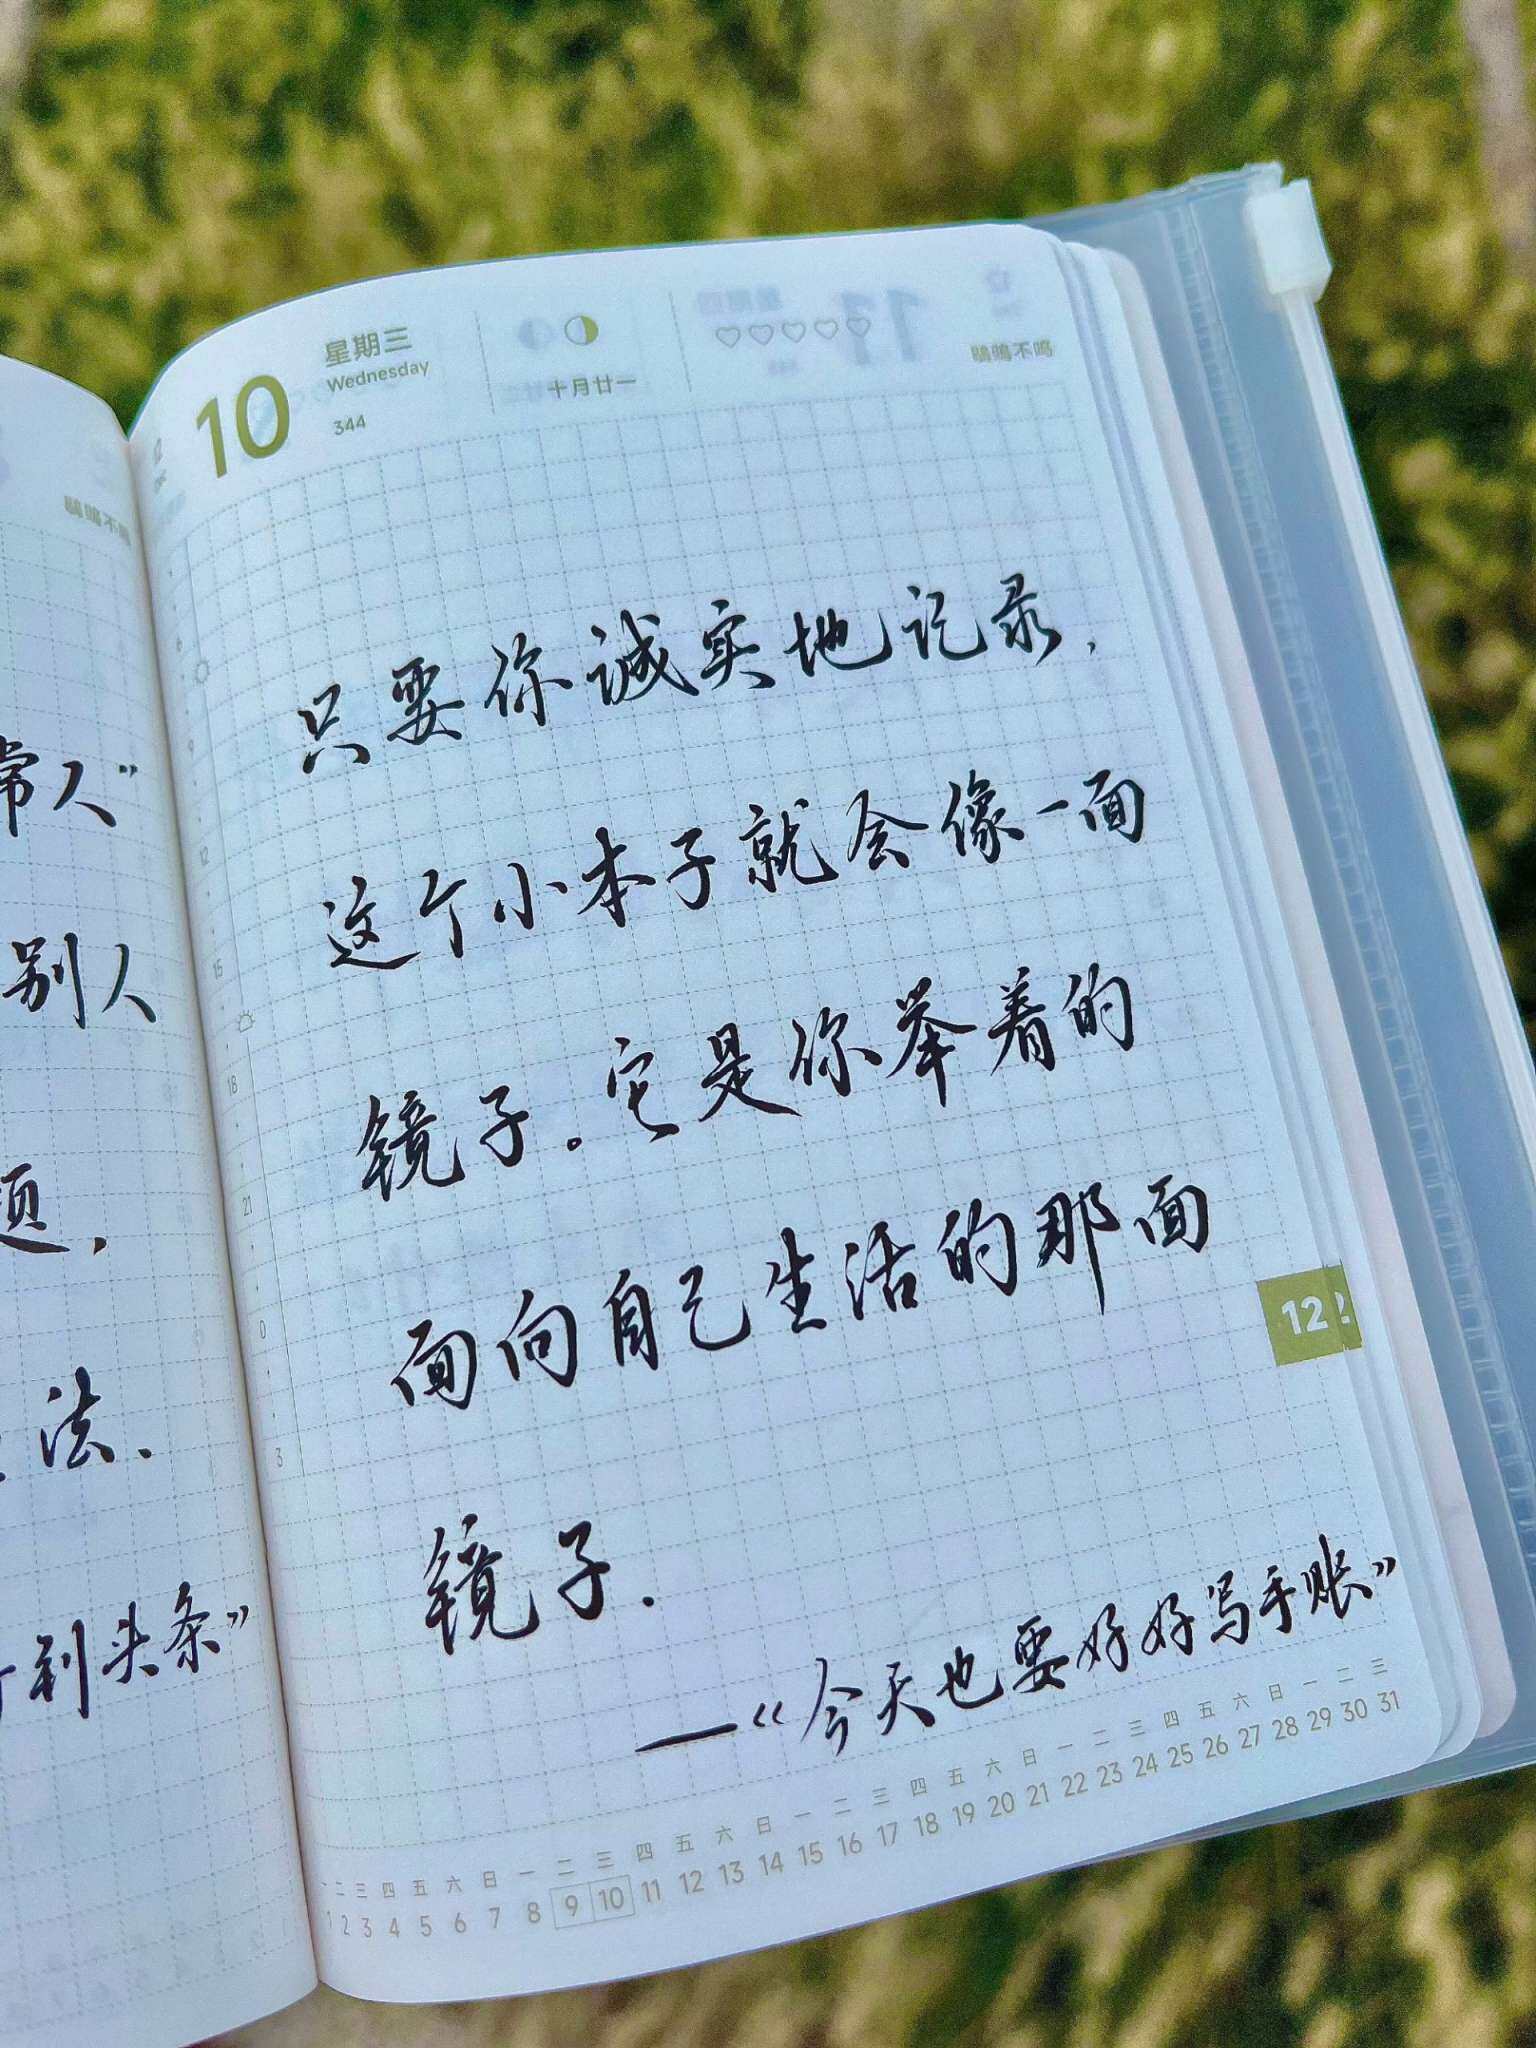 常人”
别人
题，
法、
到头条”
10
星期三
Wednesday
344
十月廿一
鹖鴠不鸣
只要你诚实地记录，
这个小本子就会像一面
镜子。它是你举着的
面向自己生活的那面
镜子.
—《今天也要好好写手账》
9
12
15
18
21
0
3
12
一 二 三 四 五 六 日 一 二 三 四 五 六 日 一 二 三 四 五 六 日 一 二 三 四 五 六 日 一 二 三
1 2 3 4 5 6 7 8 9 10 11 12 13 14 15 16 17 18 19 20 21 22 23 24 25 26 27 28 29 30 31